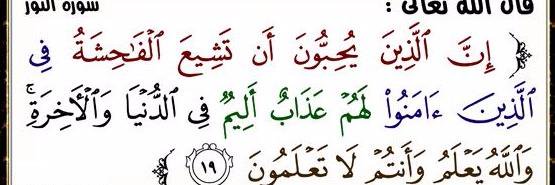 قال الله تعالى : سورة النور
إِنَّ ٱلَّذِينَ يُحِبُّونَ أَن تَشِيعَ ٱلْفَـٰحِشَةُ فِى
ٱلَّذِينَ ءَامَنُوا۟ لَهُمْ عَذَابٌ أَلِيمٌ فِى ٱلدُّنْيَا وَٱلْـَٔاخِرَةِ ۚ
وَٱللَّهُ يَعْلَمُ وَأَنتُمْ لَا تَعْلَمُونَ ١٩